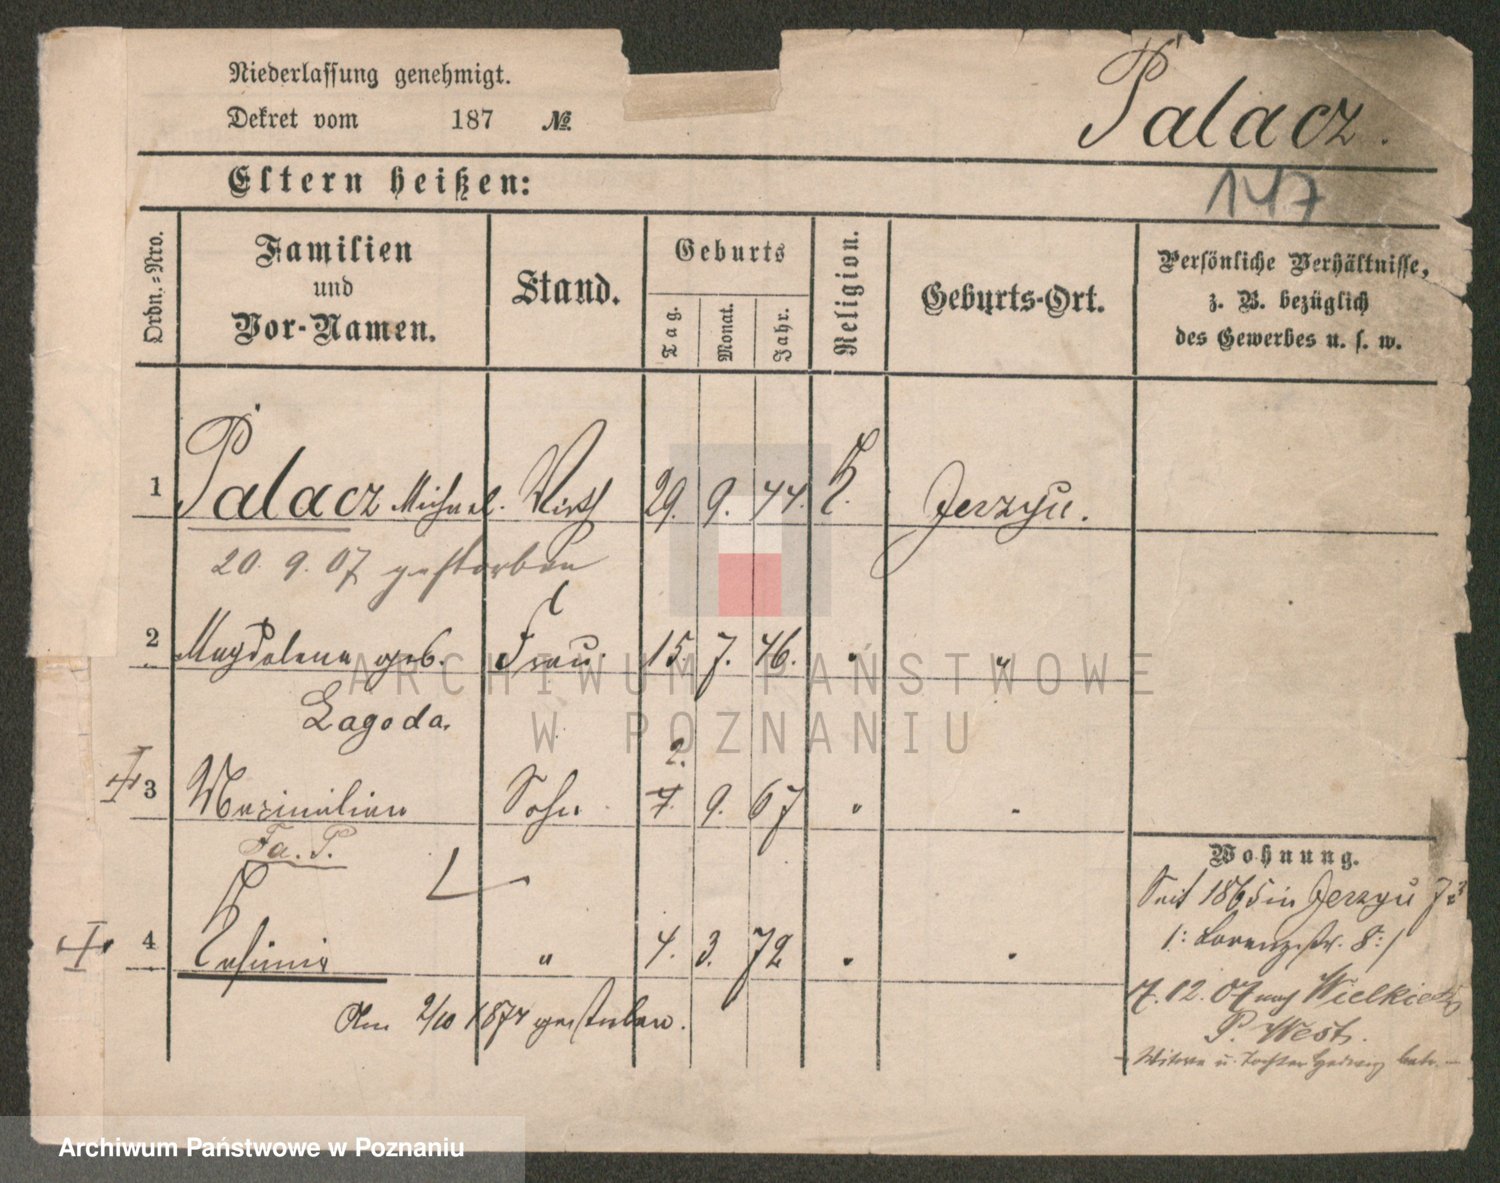 Niederlassung genehmigt.
Dekret vom 187 №
Palacz.
Eltern heißen:
147
Ordn.-Nro.
Familien
und
Vor-Namen.
Stand.
Geburts
Tag.
Monat.
Jahr.
Religion.
Geburts-Ort.
Persönliche Verhältnisse,
z. B. bezüglich
des Gewerbes u. s. w.
1 Palacz Michael. Wirth 29. 9. 44. K. Jerzyu.
20. 9. 07 gestorben
2 Magdalena geb. Frau. 15. 7. 46. " "
Łagoda.
2.
3 Maximilian Sohn 7. 9. 67 " "
Fa. P.
4 " 4. 3. 72 " "
Am 2/10 1874 gestorben.
Wohnung.
Seit 1865 in Jerzyu
Lorenzstr. 8
7.12.07 nach
P. West.
Witwe u. Tochter Hedwig
ARCHIWUM PAŃSTWOWE
W POZNANIU
Archiwum Państwowe w Poznaniu